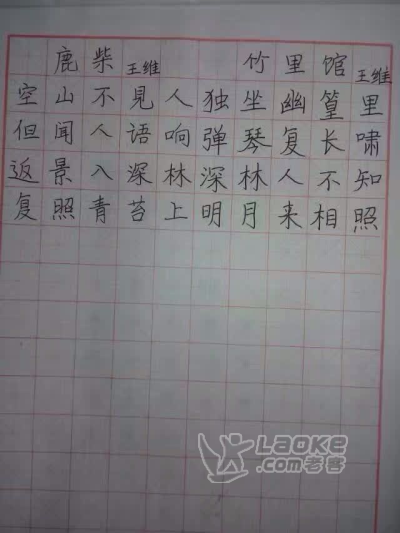 鹿柴 王维
空山不見人
但闻人语响
返景入深林
复照青苔上
竹里馆 王维
独坐幽篁里
弹琴复长啸
深林人不知
明月来相照
LAOKE
.com老客